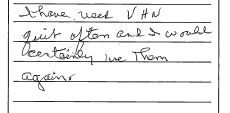 I have used VHN
quit often and I would
certainly use Them
again.